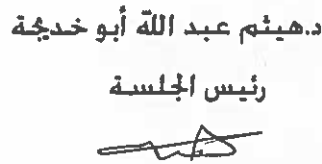 د.هيثم عبد الله أبو خديجة
رئيس الجلسة